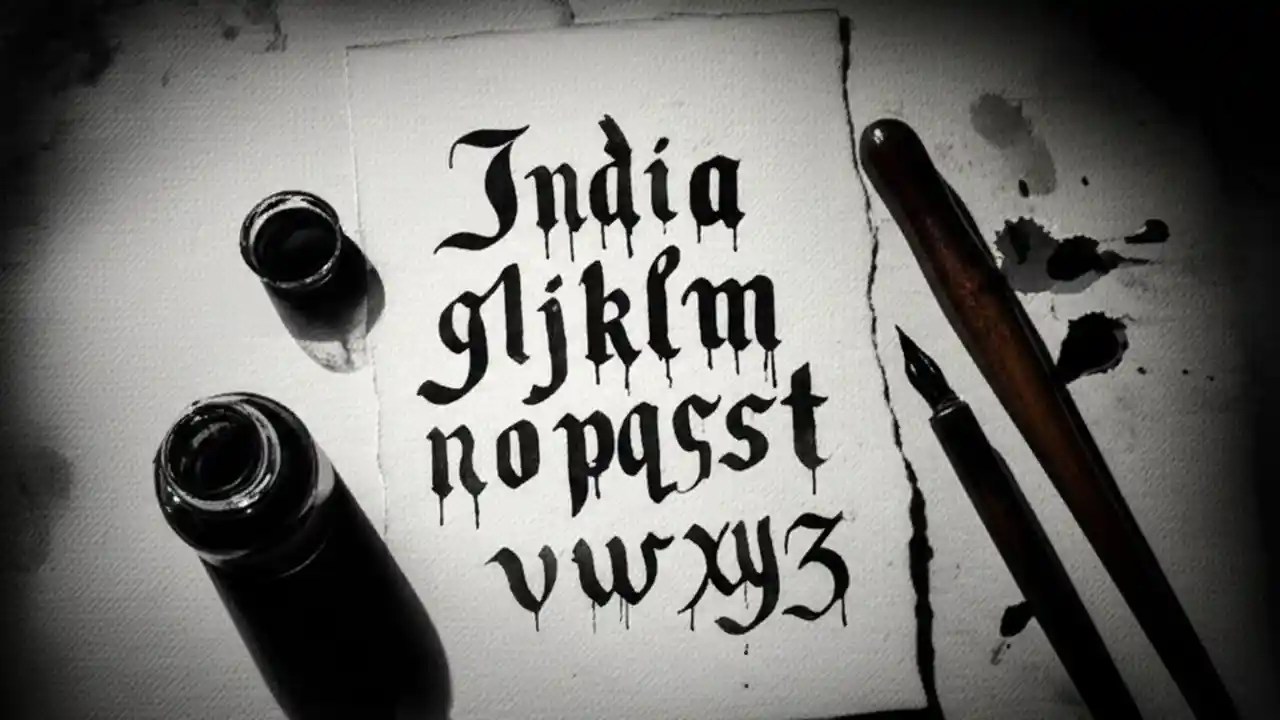 India
gljklm
nopqsst
vwxyz